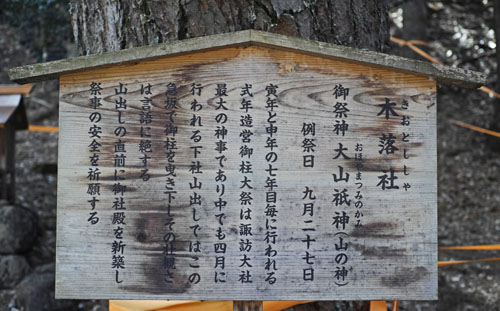 きおとししゃ
木落社
おほやまつみのかみ
御祭神 大山祇神(山の神)
例祭日 九月二十七日
寅年と申年の七年目毎に行われる
式年造営御柱大祭は諏訪大社
最大の神事であり中でも四月に
行われる下社山出しではこの
急坂で御柱を曳き下しその壮観さ
は言語に絶する
山出しの直前に御社殿を新築し
祭事の安全を祈願する